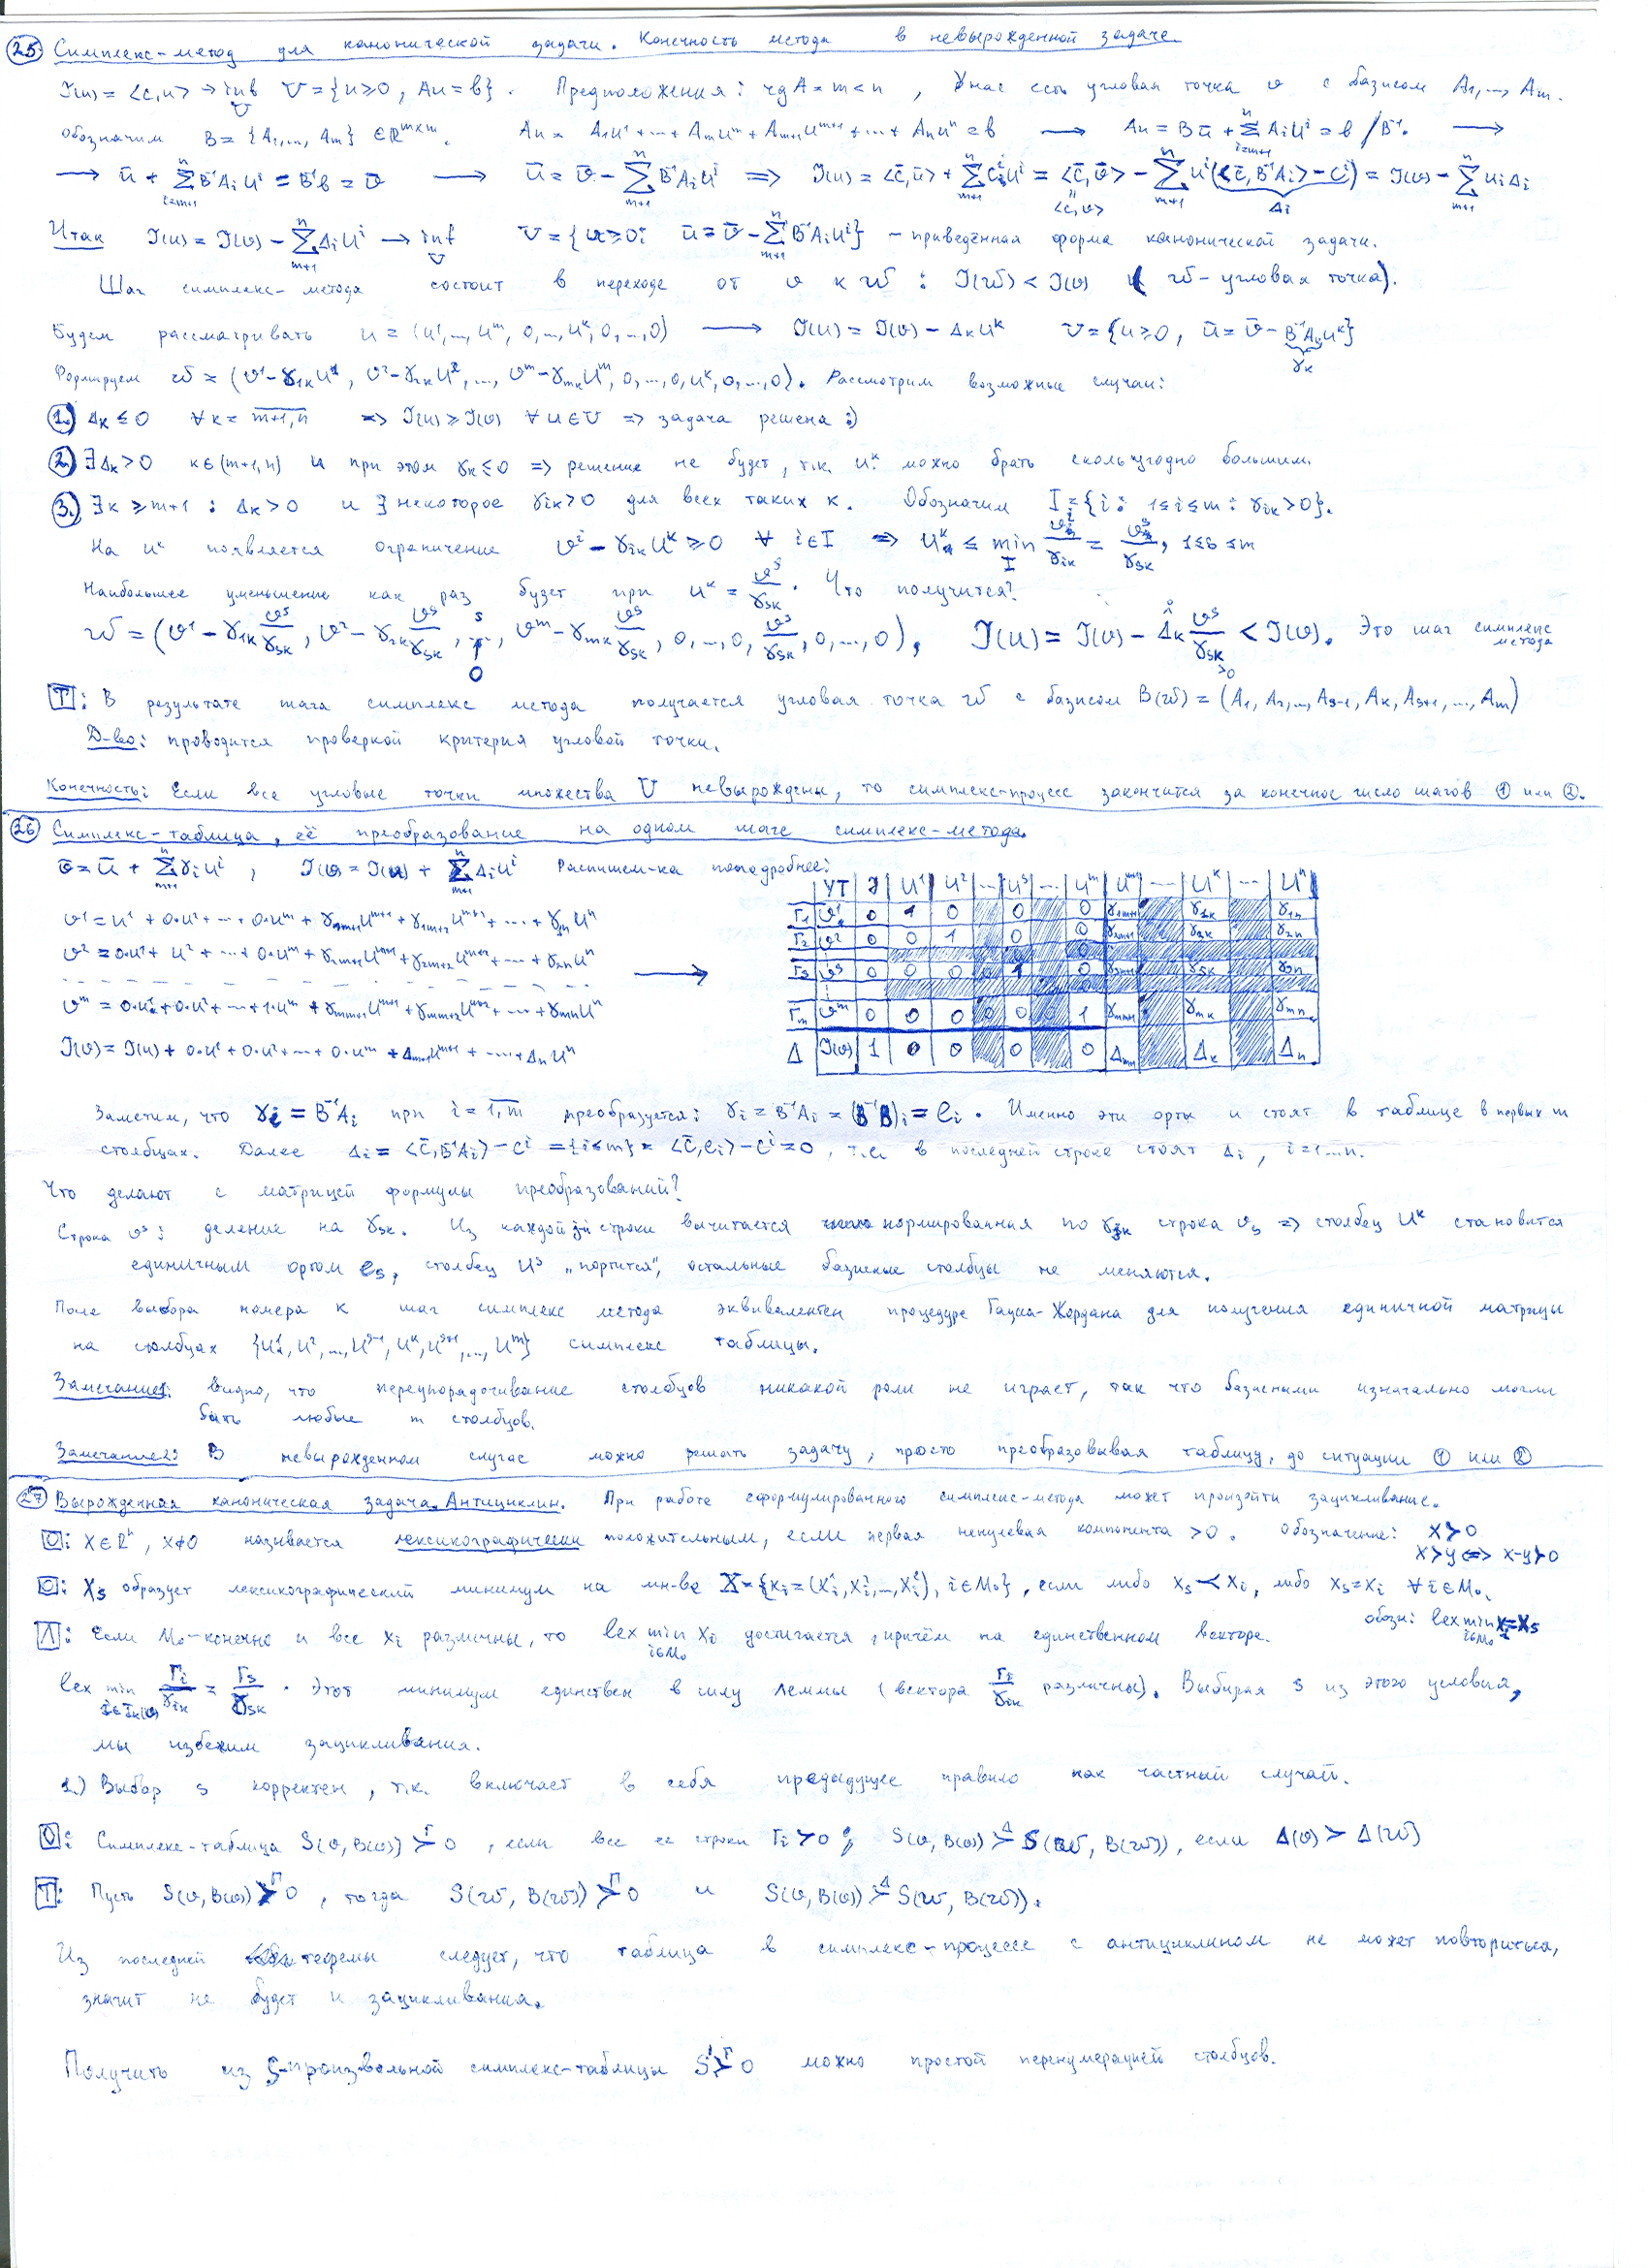 25 Симплекс-метод для канонической задачи. Конечность метода в невырожденной задаче
J(u) = <c,u> → inf U = {u≥0, Au = b}. Предположения: rg A = m < n, У нас есть угловая точка v с базисом A₁,..., Aₘ.
Обозначим B = {A₁,..., Aₘ} ∈ ℝ^{m×m}. Au = A₁u¹ + ... + Aₘuᵐ + Aₘ₊₁uᵐ⁺¹ + ... + Aₙuⁿ = b → Au = Bū + Σ_{i=m+1}^n Aᵢuⁱ = b /B⁻¹. →
→ ū + Σ_{i=m+1}^n B⁻¹Aᵢuⁱ = B⁻¹b = v̄ → ū = v̄ - Σ_{m+1}^n B⁻¹Aᵢuⁱ => J(u) = <c̄,ū> + Σ_{m+1}^n cⁱuⁱ = <c̄,v̄> - Σ_{m+1}^n uⁱ(<c̄, B⁻¹Aᵢ> - cⁱ) = J(v) - Σ_{m+1}^n uᵢΔᵢ
<c,v> Δᵢ
Итак J(u) = J(v) - Σ_{m+1}^n Δᵢuⁱ → inf U = {u≥0; ū = v̄ - Σ_{m+1}^n B⁻¹Aᵢuⁱ} - приведённая форма канонической задачи.
Шаг симплекс-метода состоит в переходе от v к w : J(w) < J(v) (w - угловая точка).
Будем рассматривать u = (u¹,..., uᵐ, 0,..., uᵏ, 0,..., 0) → J(u) = J(v) - Δₖuᵏ U = {u≥0, ū = v̄ - B⁻¹Aₖuᵏ}
γₖ
Формируем w = (v¹-γ₁ₖu¹, v²-γ₂ₖu², ..., vᵐ-γₘₖuᵐ, 0,..., 0, uᵏ, 0,..., 0). Рассмотрим возможные случаи:
1. Δₖ ≤ 0 ∀k = m+1,n => J(u) ≥ J(v) ∀u∈U => задача решена :)
2. ∃Δₖ>0 k∈(m+1,n) и при этом γₖ≤0 => решение не будет, т.к. uᵏ можно брать сколь угодно большим.
3. ∃k≥m+1 : Δₖ>0 и ∃ некоторое γᵢₖ>0 для всех таких k. Обозначим I = {i : 1≤i≤m : γᵢₖ>0}.
На uᵏ появляется ограничение vⁱ - γᵢₖuᵏ ≥ 0 ∀ i∈I => uᵏ ≤ min_I vⁱ/γᵢₖ = vˢ/γₛₖ, 1≤s≤m
Наибольшее уменьшение как раз будет при uᵏ = vˢ/γₛₖ. Что получится?
w = (v¹ - γ₁ₖ vˢ/γₛₖ, v² - γ₂ₖ vˢ/γₛₖ, ..., vᵐ - γₘₖ vˢ/γₛₖ, 0,..., 0, vˢ/γₛₖ, 0,..., 0), J(u) = J(v) - Δₖ vˢ/γₛₖ < J(v). Это шаг симплекс метода
T: В результате шага симплекс метода получается угловая точка w с базисом B(w) = (A₁, A₂,..., Aₛ₋₁, Aₖ, Aₛ₊₁,..., Aₘ)
Д-во: проводится проверкой критерия угловой точки.
Конечность: Если все угловые точки множества U невырождены, то симплекс-процесс закончится за конечное число шагов 1 или 2.
26 Симплекс-таблица, её преобразование на одном шаге симплекс-метода.
v̄ = ū + Σ_{m+1}^n γᵢuⁱ, J(v) = J(u) + Σ_{m+1}^n Δᵢuⁱ Распишем-ка поподробнее:
v¹ = u¹ + 0·u² + ... + 0·uᵐ + γ₁ₘ₊₁uᵐ⁺¹ + γ₁ₘ₊₂uᵐ⁺² + ... + γ₁ₙuⁿ
v² = 0·u¹ + u² + ... + 0·uᵐ + γ₂ₘ₊₁uᵐ⁺¹ + γ₂ₘ₊₂uᵐ⁺² + ... + γ₂ₙuⁿ
vᵐ = 0·u¹ + 0·u² + ... + 1·uᵐ + γₘₘ₊₁uᵐ⁺¹ + γₘₘ₊₂uᵐ⁺² + ... + γₘₙuⁿ
J(v) = J(u) + 0·u¹ + 0·u² + ... + 0·uᵐ + Δₘ₊₁uᵐ⁺¹ + ... + Δₙuⁿ
УТ J u¹ u² ... uˢ ... uᵐ uᵐ⁺¹ ... uᵏ ... uⁿ
Γ₁ v¹ 0 1 0 0 0 γ₁ₘ₊₁ γ₁ₖ γ₁ₙ
Γ₂ v² 0 0 1 0 0 γ₂ₘ₊₁ γ₂ₖ γ₂ₙ
Γₛ vˢ 0 0 0 0 1 0 γₛₘ₊₁ γₛₖ γₛₙ
Γₘ vᵐ 0 0 0 0 0 0 1 γₘₘ₊₁ γₘₖ γₘₙ
Δ J(v) 1 0 0 0 0 Δₘ₊₁ Δₖ Δₙ
Заметим, что γᵢ = B⁻¹Aᵢ при i = 1,m преобразуется: γᵢ = B⁻¹Aᵢ = (B⁻¹B)ᵢ = eᵢ. Именно эти орты и стоят в таблице в первых m
столбцах. Далее Δᵢ = <c̄, B⁻¹Aᵢ> - cⁱ = {i≤m} = <c̄, eᵢ> - cⁱ = 0, т.е. в последней строке стоят Δᵢ, i=1...n.
Что делают с матрицей формулы преобразований?
Строка vˢ: деление на γₛₖ. Из каждой строки вычитается нормированная по γⱼₖ строка vₛ => столбец uᵏ становится
единичным ортом eₛ, столбец uˢ „портится”, остальные базисные столбцы не меняются.
После выбора номера k шаг симплекс метода эквивалентен процедуре Гаусса-Жордана для получения единичной матрицы
на столбцах {u¹, u²,..., uˢ⁻¹, uᵏ, uˢ⁺¹,..., uᵐ} симплекс таблицы.
Замечание1: Видно, что переупорядочивание столбцов никакой роли не играет, так что базисными изначально могли
быть любые m столбцов.
Замечание2: В невырожденном случае можно решать задачу, просто преобразовывая таблицу, до ситуации 1 или 2
27 Вырожденная каноническая задача. Антициклин. При работе сформулированного симплекс-метода может произойти зацикливание.
O: x∈ℝᵏ, x≠0 называется лексикографически положительным, если первая ненулевая компонента >0. Обозначение: x≻0
x≻y <=> x-y≻0
O: xₛ образует лексикографический минимум на мн-ве X = {xᵢ = (xᵢ¹, xᵢ²,..., xᵢˡ), i∈M₀}, если либо xₛ≺xᵢ, либо xₛ=xᵢ ∀i∈M₀.
обозн: lex min_{i∈M₀} xᵢ = xₛ
Л: Если M₀ - конечно и все xᵢ различны, то lex min_{i∈M₀} xᵢ достигается, причём на единственном векторе.
lex min_{i∈Iₖ(v)} Γᵢ/γᵢₖ = Γₛ/γₛₖ. Этот минимум единствен в силу Леммы (вектора Γᵢ/γᵢₖ различны). Выбирая s из этого условия,
мы избежим зацикливания.
1.) Выбор s корректен, т.к. включает в себя предыдущее правило как частный случай.
O: Симплекс-таблица S(v, B(v)) ≻^Γ 0, если все её строки Γᵢ≻0; S(v, B(v)) ≻^Δ S(w, B(w)), если Δ(v) ≻ Δ(w)
T: Пусть S(v, B(v)) ≻^Γ 0, тогда S(w, B(w)) ≻^Γ 0 и S(v, B(v)) ≻^Δ S(w, B(w)).
Из последней теоремы следует, что таблица в симплекс-процессе с антициклином не может повториться,
значит не будет и зацикливания.
Получить из S-произвольной симплекс-таблицы S' ≻^Γ 0 можно простой перенумерацией столбцов.